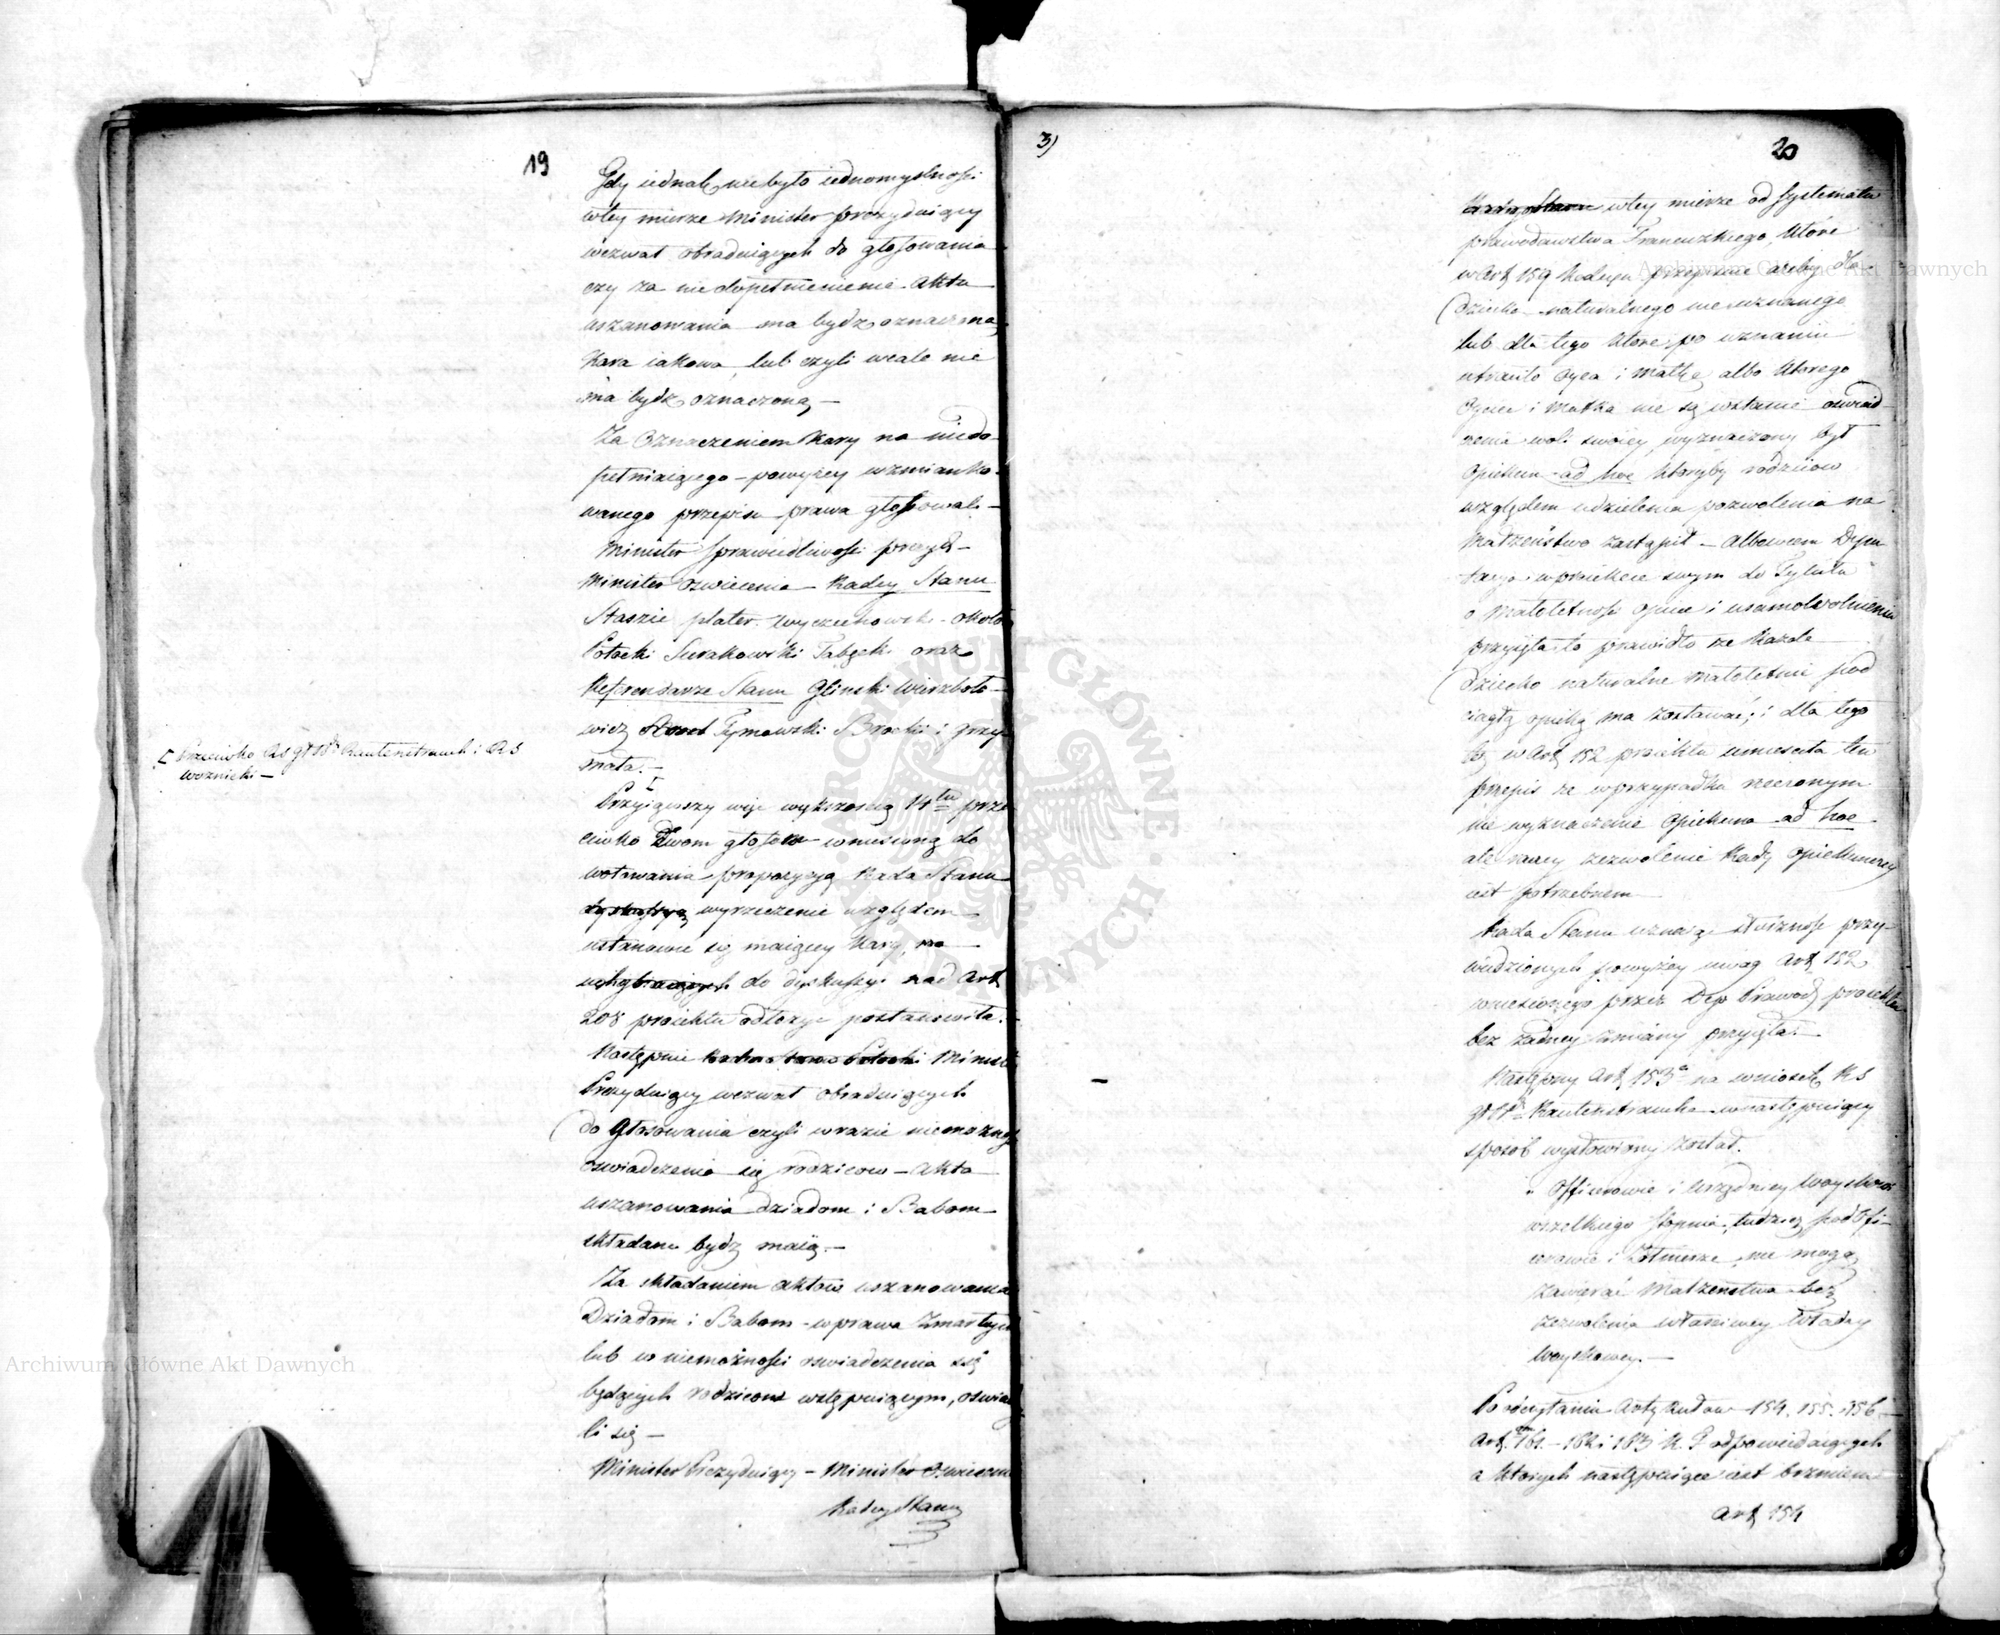 19
Gdy iednak nie było iednomyslności
w tey mierze Minister prezyduiący
wezwał obraduiących do głosowania
czy za niedopełnienienie Aktu
uszanowania ma bydź oznaczona
Kara iakowa, lub czyli wcale nie
ma bydź oznaczoną —
Za Oznaczeniem Kary na niedo-
pełniaiącego – powyżey wzmianko-
wanego przepisu prawa głosowali –
Minister Sprawiedliwości prezyd –
Minister Oswiecenia – Radcy Stanu
Staszic Plater. Wyczechowski – Około
Potocki Surakowski Tabęcki oraz
Referendarze Stanu Gliński Wierzboło-
wicz Tymowski Brocki i Grzy-
mała. – [
[ Przeciwko RS Rautenstrauch i RS
Woznicki —
Przyiąwszy więc większością 14tu prze
ciwko Dwom głosow – wniesioną do
wotowania propozycyą Rada Stanu
wyrzeczenie względem
ustanowić się maiącey Kary,
do dyskussyi nad Art
208 proiektu odłożyć postanowiła. –
Następnie Minist
Prezyduiący wezwał obraduiących
do Głosowania czyli w razie niemożnoś
oswiadczenia się rodziców – Akta
uszanowania dziadom i Babom
składane bydź maią. –
Za składaniem aktów uszanowania
Dziadom i Babom – w prawa Zmarłych
lub w niemożności oswiadczenia się
będących rodziców wstępuiącym, oswiad
li się —
Minister Prezyduiący – Minister Oswiecenia
Radcy Stanu
3)
20
w tey mierze od Systematu
prawodawstwa Francuzkiego, które
w Art 159 Kodexu przepisuie ażeby dla
Dziecka naturalnego nieuznanego
lub dla tego które po uznaniu
utraciło Oyca i Matkę albo którego
Oyciec i Matka nie są w stanie oswiad-
czenia woli swoiey, wyznaczony był
Opiekun ad hoc któryby rodziców
względem udzielenia pozwolenia na
Małżeństwo zastąpił – Albowiem Depu
tacya w proiekcie swym do Tytułu
o Małoletności opiece i usamowolnieniu
przyięła to prawidło że każde
Dziecko naturalne małoletnie pod
ciągłą opieką ma zostawać; i dla tego
też w Art 152 proiektu umiesciła ten
przepis że w przypadku rzeczonym
nie wyznaczenie Opiekuna ad hoc
ale raczey zezwolenie Rady Opiekunczey
iest potrzebnem
Rada Stanu uznaiąc słuszność przy-
wiedzionych powyżey uwag Art 152
wniesionego przez Dep Prawod proiektu
bez żadney zmiany przyięła. –
Następny Art 153 na wniosek RS
Rautenstraucha w następuiący
sposób wysłowiony został.
„ Officerowie i Urzędnicy Woyskowi
wszelkiego Stopnia, tudzież podoffi-
cerowie i Żołnierze, nie mogą
zawierać Małżeństwa bez
zezwolenia właściwey Władzy
Woyskowey. –
Po odczytaniu Artykułow 154. 155. 156 –
Art. 161. – 162 i 163 K. P odpowiadaiących
a których następuiące iest brzmienie
Art 154
Archiwum Główne Akt Dawnych
Archiwum Główne Akt Dawnych
ARCHIWUM GŁÓWNE AKT DAWNYCH